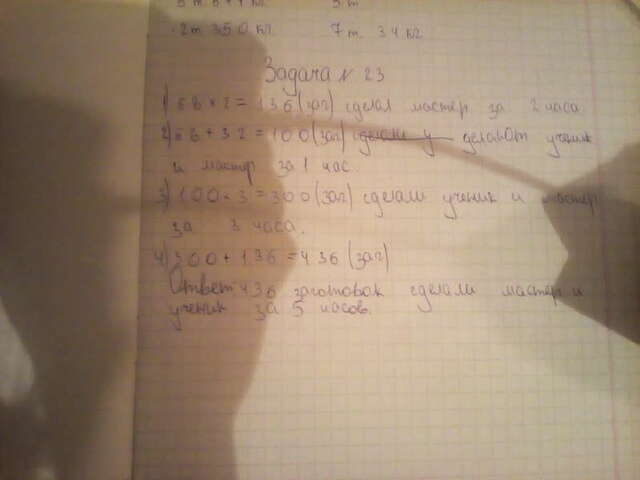 2т 360 кг 7т 34 кг
Задача № 23
1) 68 × 2 = 136 (заг) сделал мастер за 2 часа
2) 68 + 32 = 100 (заг) делают ученик
и мастер за 1 час.
3) 100 × 3 = 300 (заг) сделали ученик и мастер
за 3 часа.
4) 300 + 136 = 436 (заг)
Ответ: 436 заготовок сделали мастер и
ученик за 5 часов.